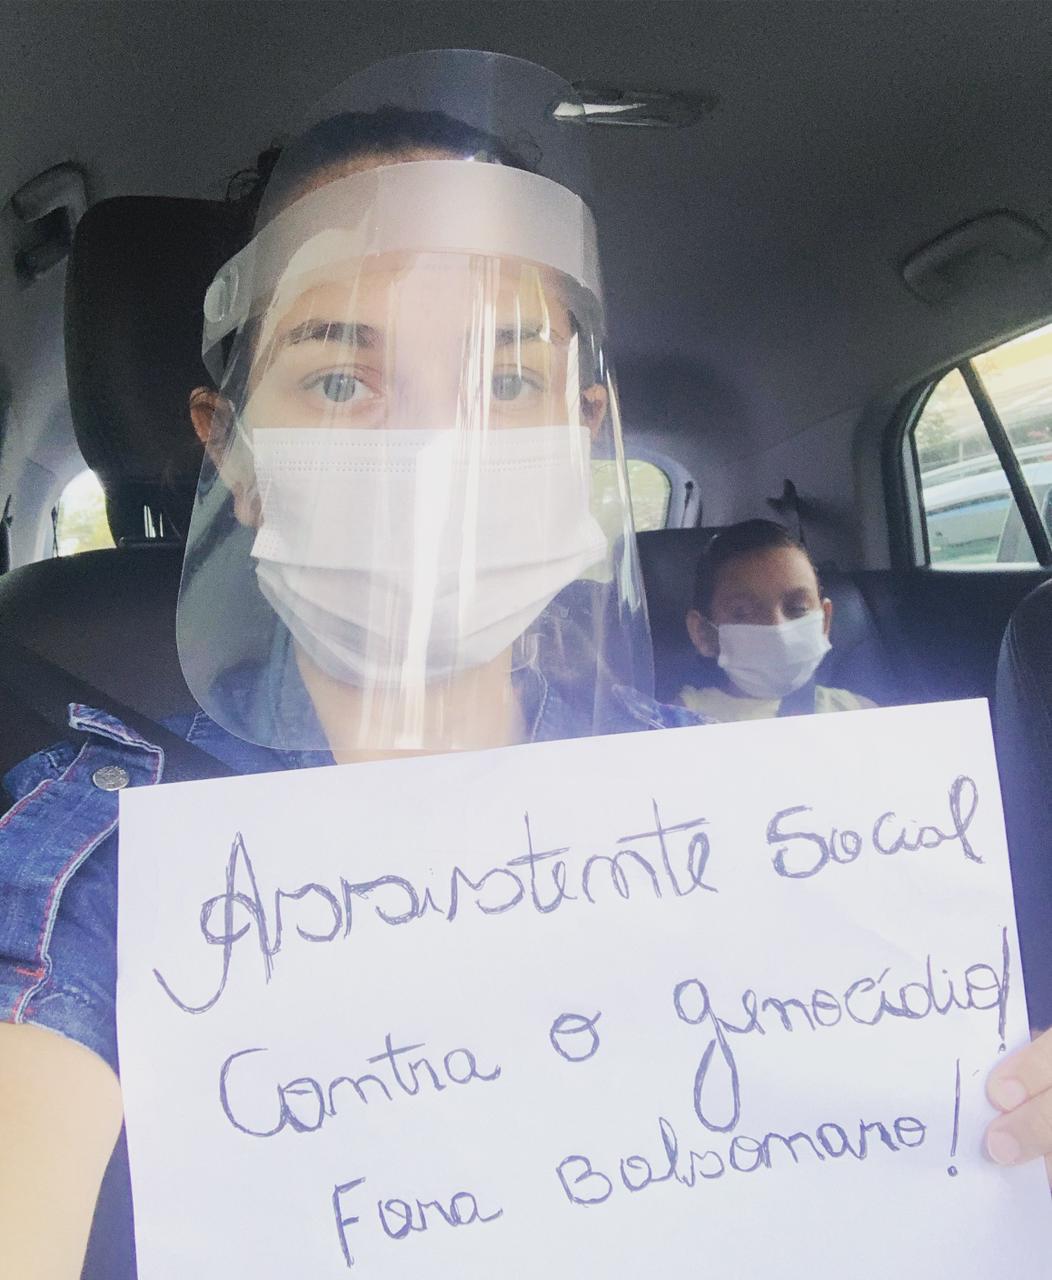 Assistente Social
Contra o genocídio!
Fora Bolsonaro!